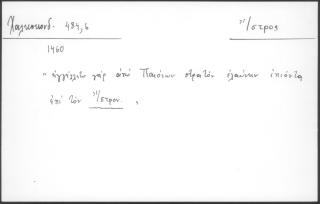 Χαλκοκονδ. 484,6 Ἴστρος
1460
" ἠγγέλλετο γὰρ ἀπὸ Παιόνων στρατὸν ἐλαύνειν ἐπιόντα
ἐπὶ τὸν Ἴστρον. ,